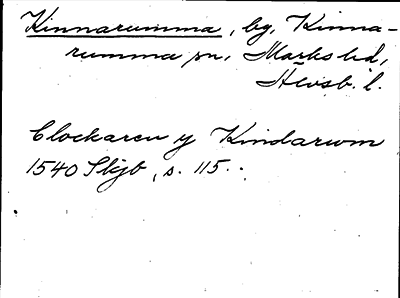 Kinnarumma, by, Kinna-
rumma sn, Marks hd,
Älvsb. l.
Clockaren y Kindarum
1540 Skjb, s. 115.